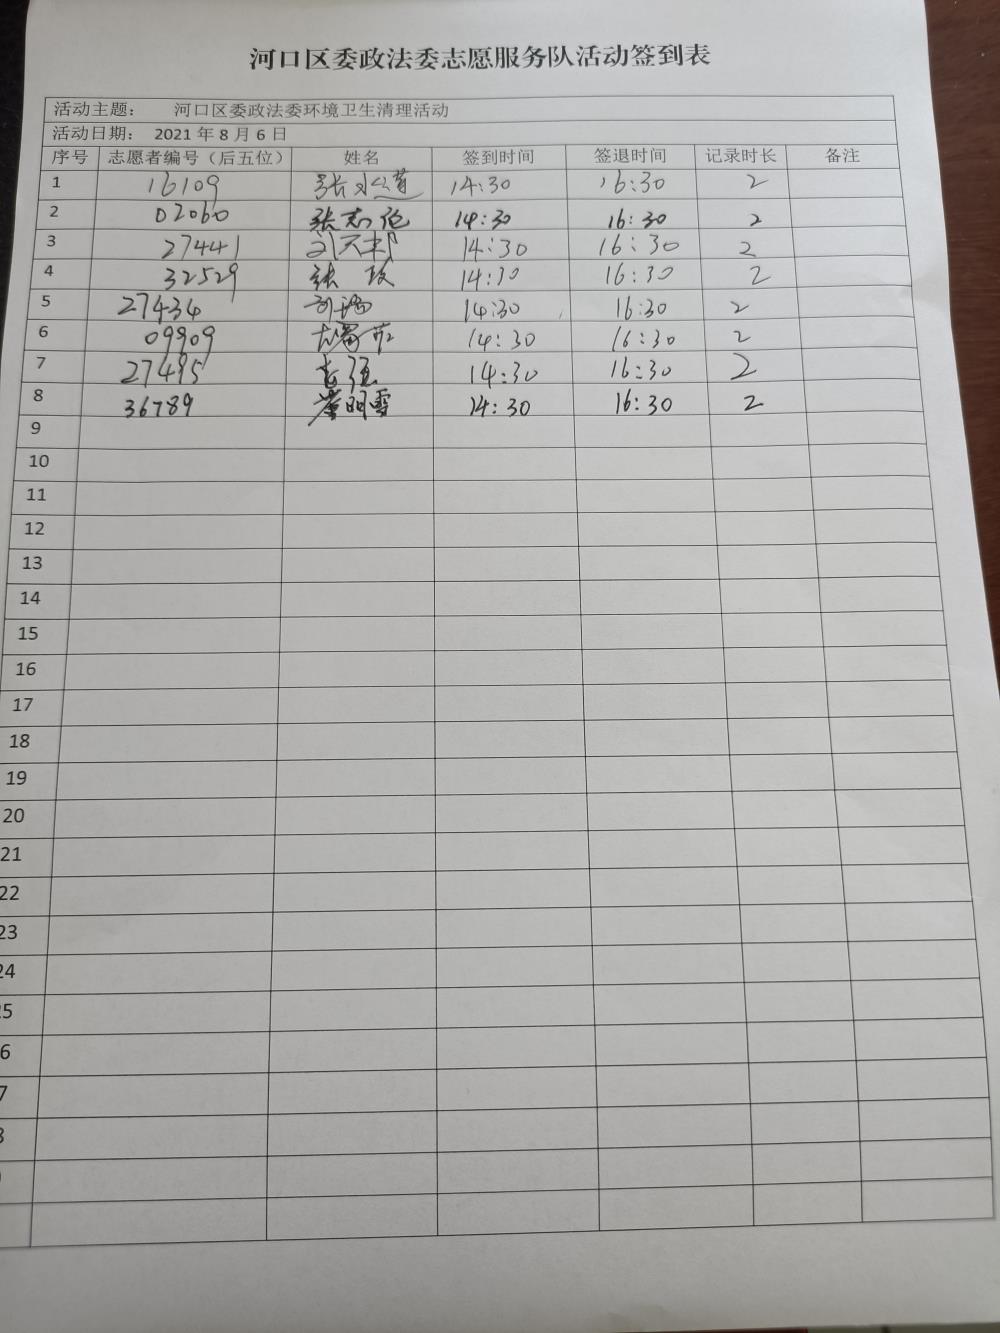 河口区委政法委志愿服务队活动签到表
活动主题： 河口区委政法委环境卫生清理活动
活动日期： 2021年8月6日
序号 志愿者编号（后五位） 姓名 签到时间 签退时间 记录时长 备注
1 16109 14:30 16:30 2
2 02060 张志 14:30 16:30 2
3 27441 14:30 16:30 2
4 32529 张 14:30 16:30 2
5 27434 14:30 16:30 2
6 09909 14:30 16:30 2
7 27495 14:30 16:30 2
8 36789 明雪 14:30 16:30 2
9
10
11
12
13
14
15
16
17
18
19
20
21
22
23
24
25
6
7